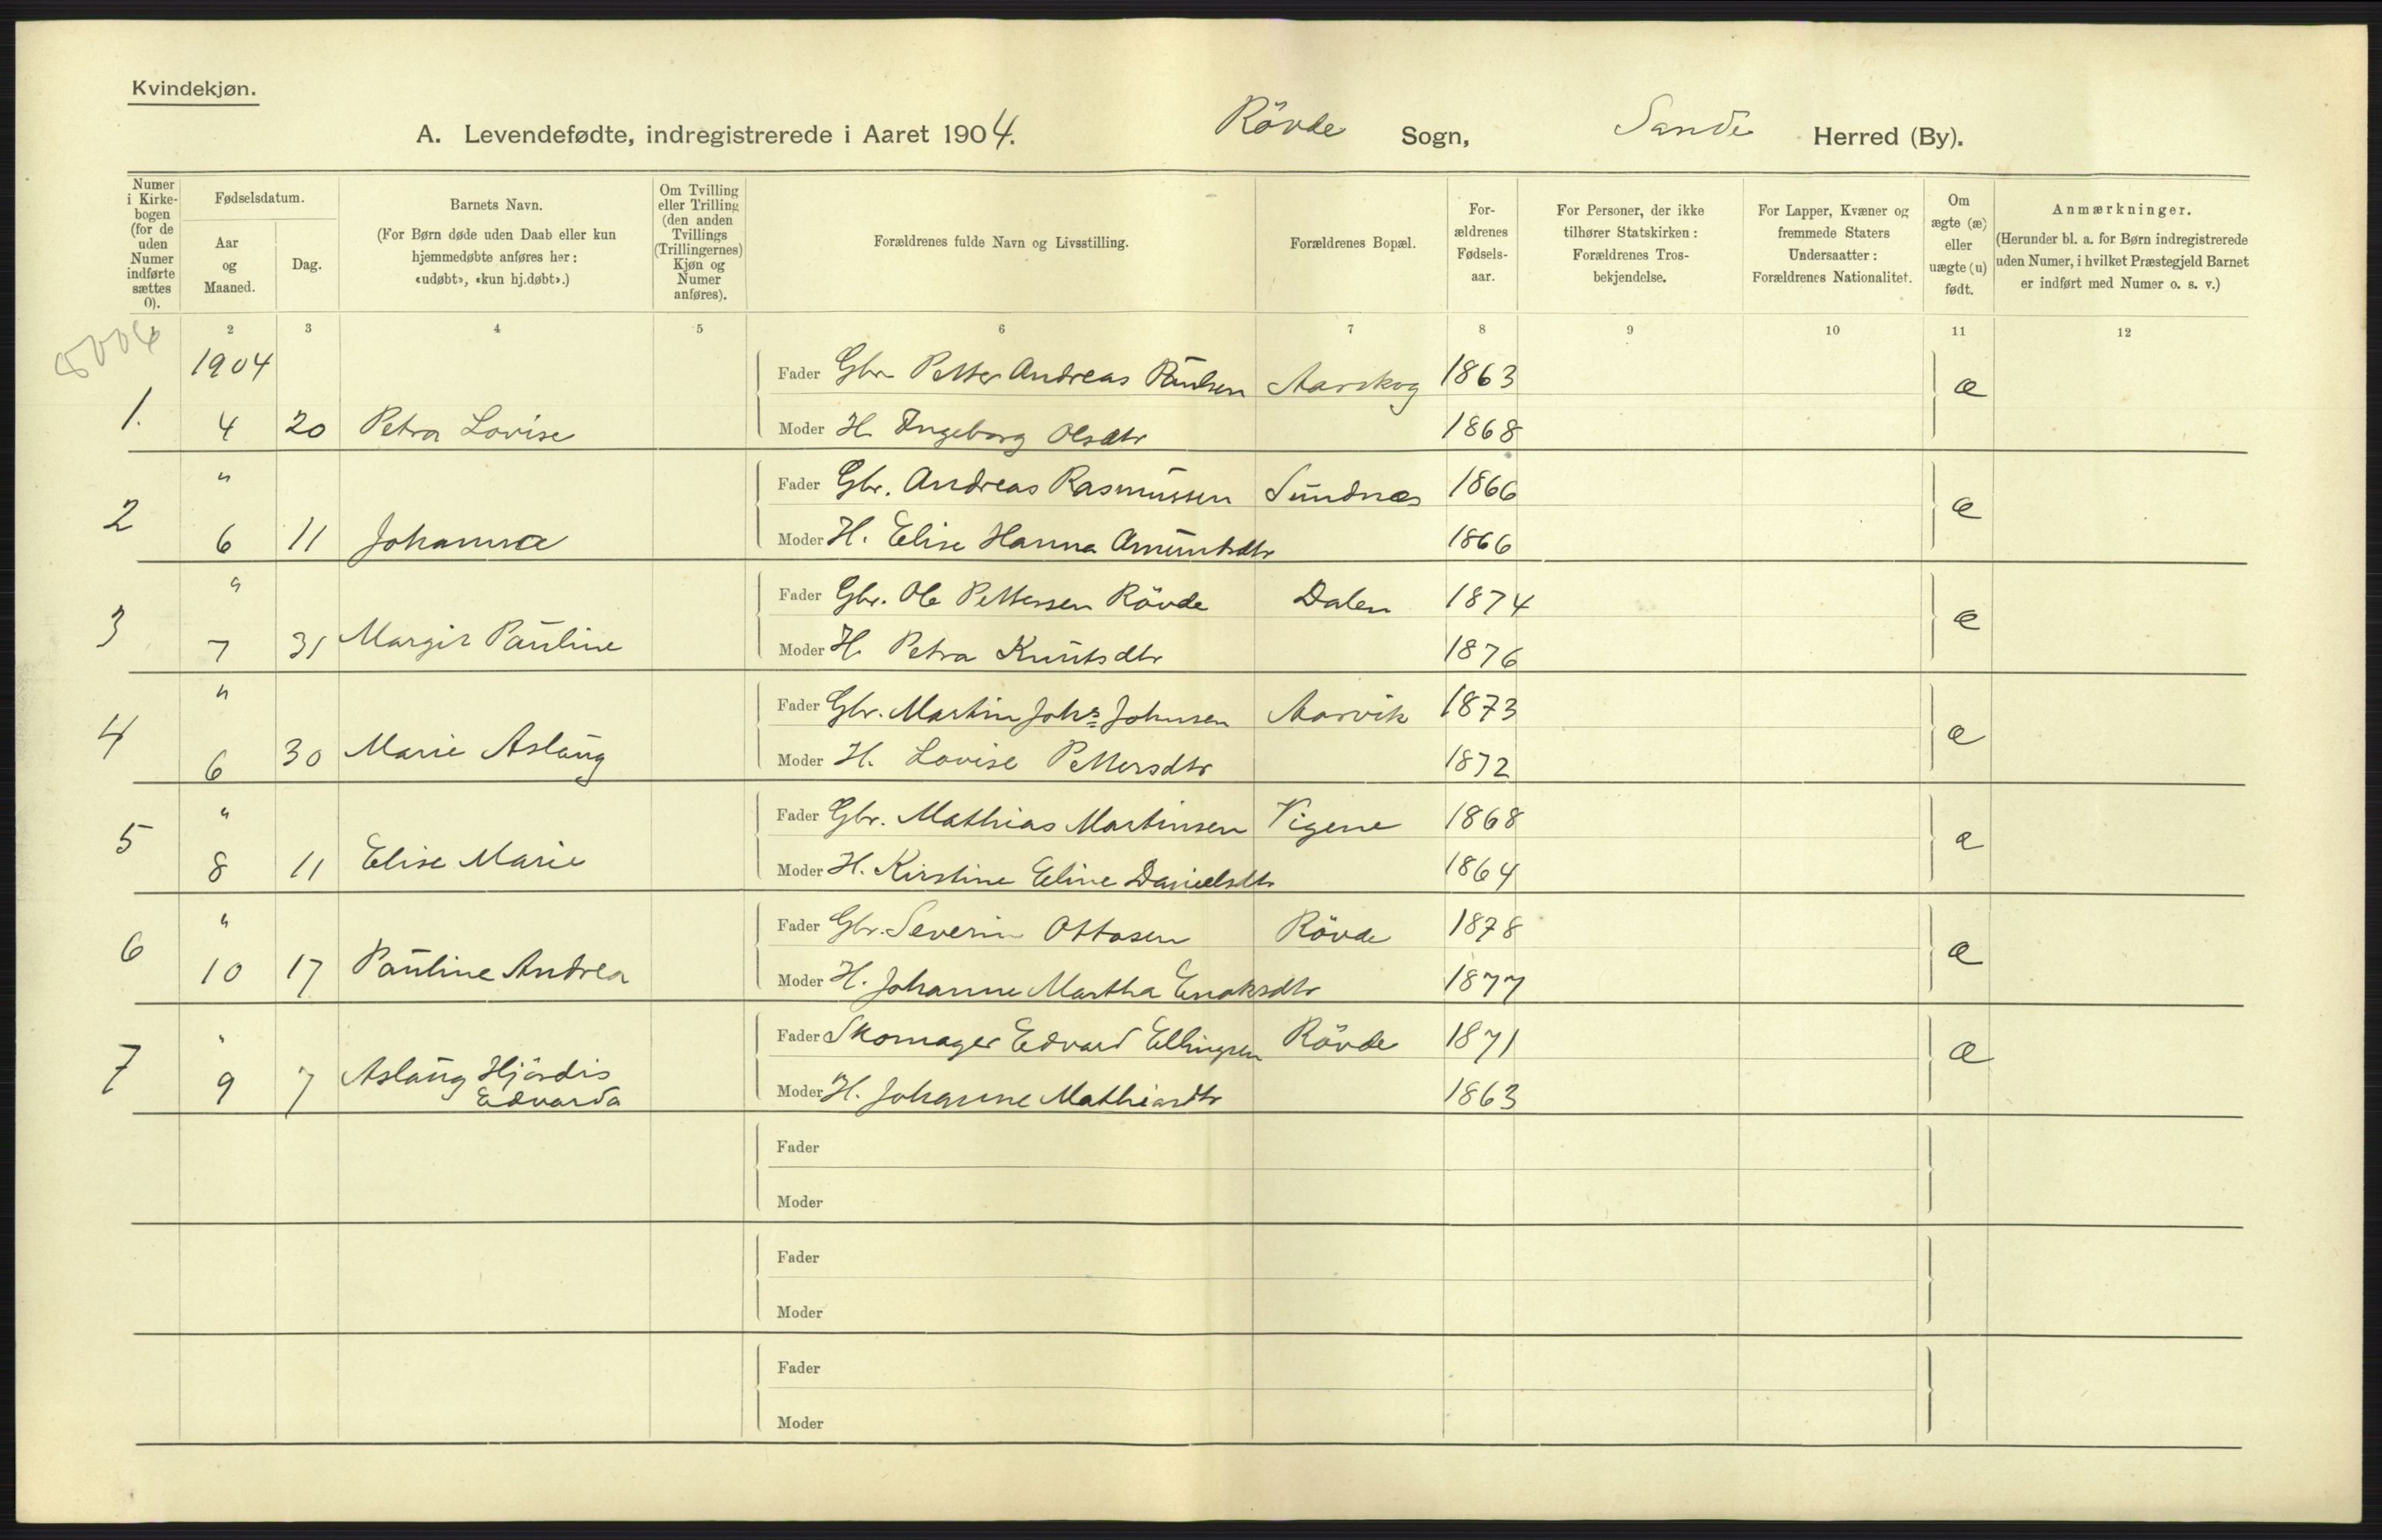 Kvindekjøn.
A. Levendefødte, indregistrerede i Aaret 1904. Rövde Sogn, Sande Herred (By).
Numer i Kirkebogen (for de uden Numer indførte sættes 0).
Fødselsdatum.
Aar og Maaned.
Dag.
Barnets Navn.
(For Børn døde uden Daab eller kun hjemmedøbte anføres her: «udøbt», «kun hj.døbt».)
Om Tvilling eller Trilling (den anden Tvillings (Trillingernes) Kjøn og Numer anføres).
Forældrenes fulde Navn og Livsstilling.
Forældrenes Bopæl.
Forældrenes Fødselsaar.
For Personer, der ikke tilhører Statskirken: Forældrenes Trosbekjendelse.
For Lapper, Kvæner og fremmede Staters Undersaatter: Forældrenes Nationalitet.
Om ægte (æ) eller uægte (u) født.
Anmærkninger.
(Herunder bl. a. for Børn indregistrerede uden Numer, i hvilket Præstegjeld Barnet er indført med Numer o. s. v.)
2 3 4 5 6 7 8 9 10 11 12
1904 Fader Gbr. Petter Andreas Paulsen Aarskog 1863 æ
1. 4 20 Petra Lovise Moder H. Ingeborg Olsdtr 1868
" Fader Gbr. Andreas Rasmussen Sundnæs 1866 æ
2 6 11 Johanna Moder H. Elise Hanna Amuntsdtr 1866
" Fader Gbr. Ole Pettersen Rövde Dalen 1874 æ
3 7 31 Margit Pauline Moder H. Petra Knutsdtr 1876
" Fader Gbr. Martin Johs Johnsen Aarvik 1873 æ
4 6 30 Marie Aslaug Moder H. Lovise Pettersdtr 1872
" Fader Gbr. Mathias Martinsen Vigene 1868 æ
5 8 11 Elise Marie Moder H. Kirstine Eline Danielsdtr 1864
" Fader Gbr. Severin Ottosen Rövde 1878 æ
6 10 17 Pauline Andrea Moder H. Johanne Martha Enoksdtr 1877
" Fader Skomager Edvard Ellingsen Rövde 1871 æ
7 9 7 Aslaug Hjördis Edvarda Moder H. Johanne Mathiasdtr 1863
Fader
Moder
Fader
Moder
Fader
Moder